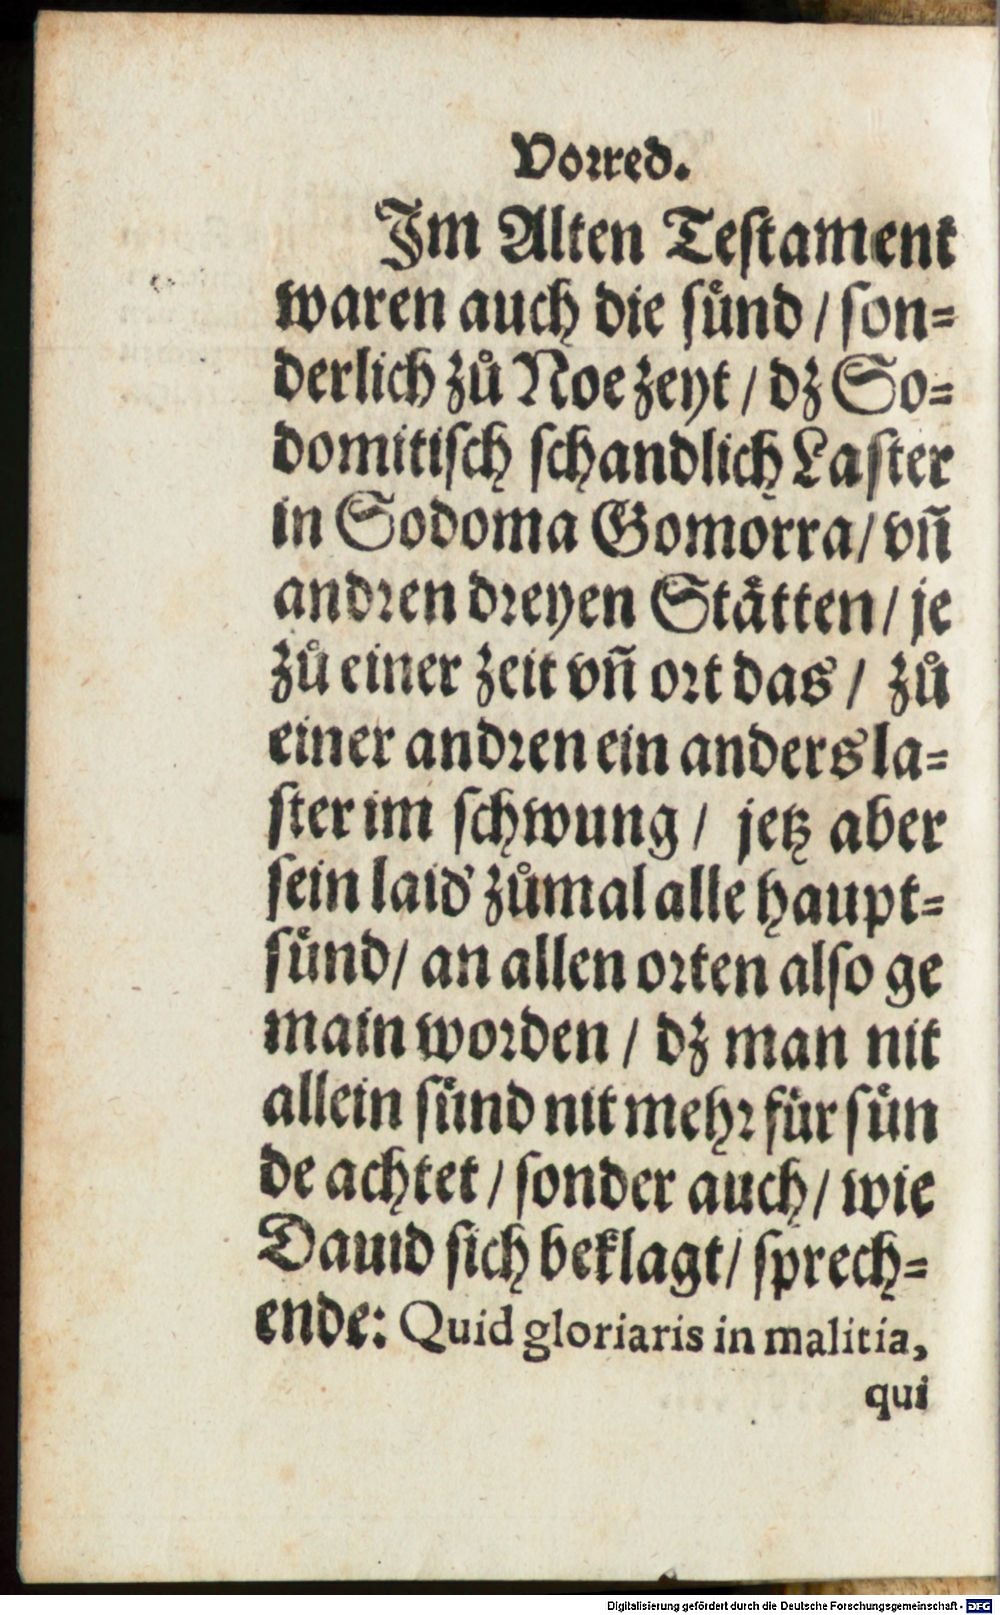 Vorred.
Im Alten Testament
waren auch die sünd / son=
derlich zů Noe zeyt / dz So=
domitisch schandlich Laster
in Sodoma Gomorra / vñ
andren dreyen Stätten / je
zů einer zeit vñ ort das / zů
einer andren ein anders la=
ster im schwung / jetz aber
sein laid zůmal alle haupt=
sünd / an allen orten also ge
main worden / dz man nit
allein sünd nit mehr für sün
de achtet / sonder auch / wie
Dauid sich beklagt / sprech=
ende: Quid gloriaris in malitia,
qui
Digitalisierung gefördert durch die Deutsche Forschungsgemeinschaft - DFG